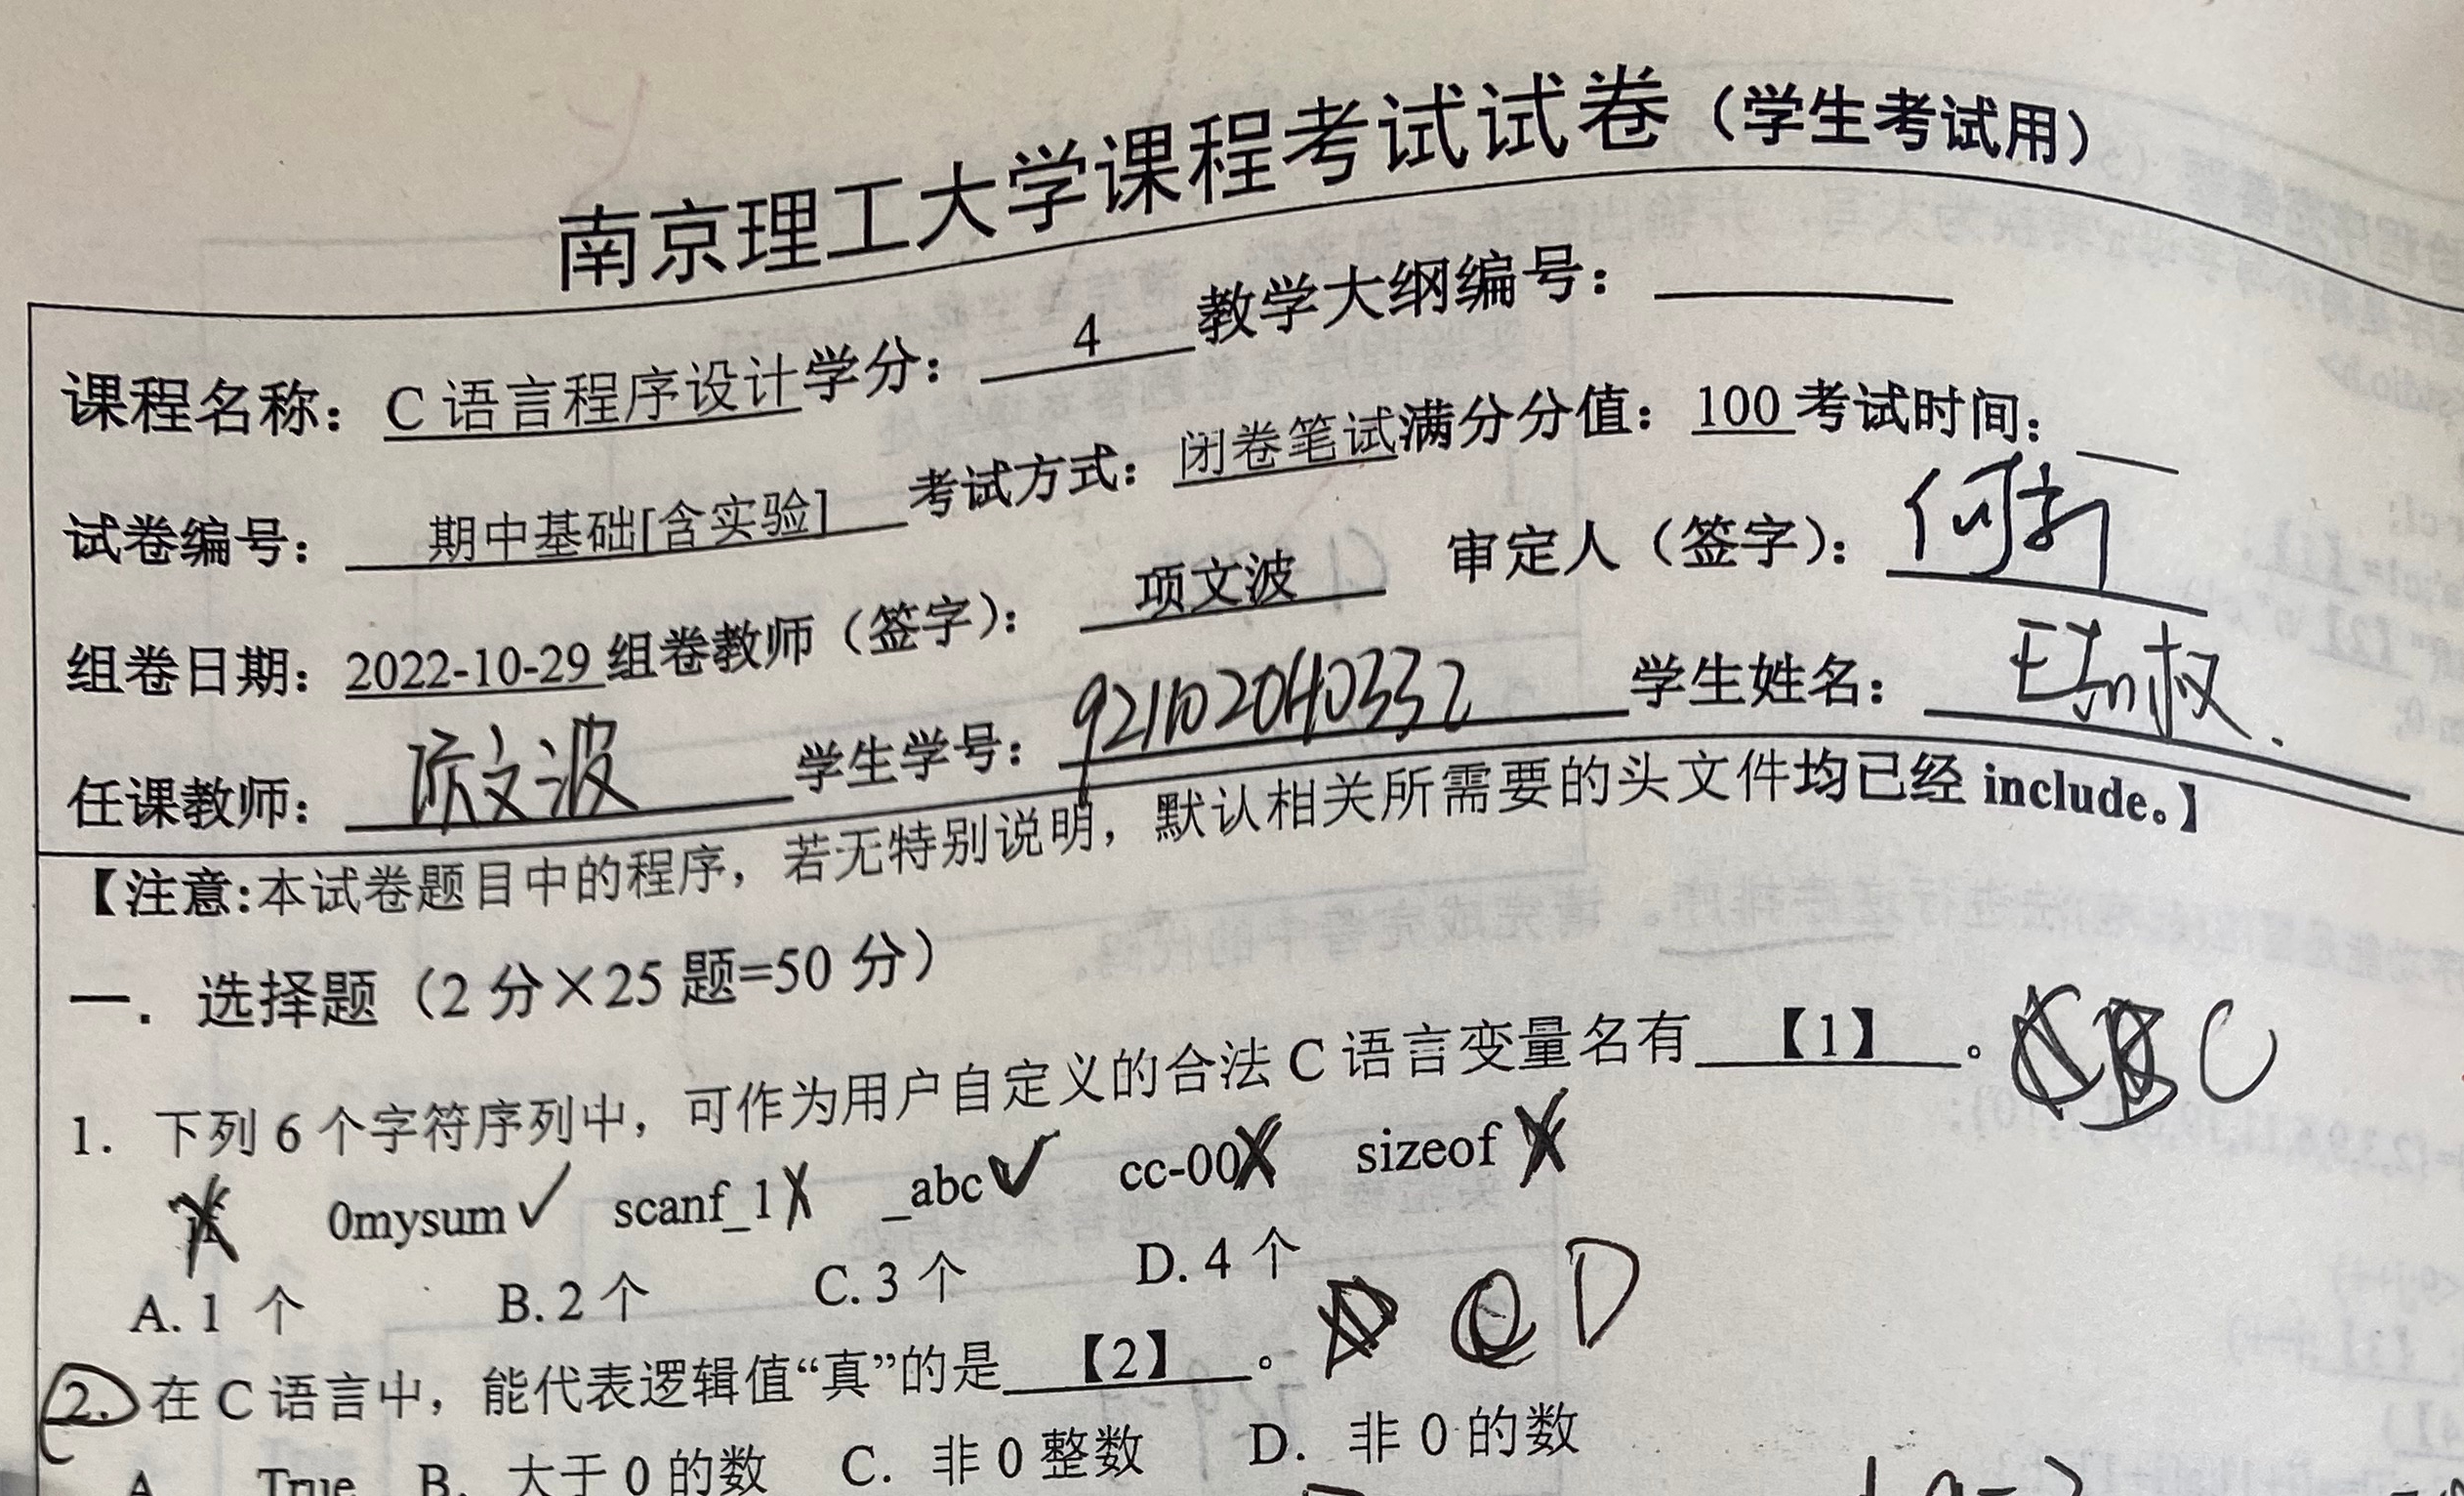 南京理工大学课程考试试卷（学生考试用）
课程名称：C 语言程序设计学分：4 教学大纲编号：
试卷编号：期中基础[含实验] 考试方式：闭卷笔试满分分值：100 考试时间：
组卷日期：2022-10-29 组卷教师（签字）：项文波 审定人（签字）：
任课教师：文波 学生学号：921102040332 学生姓名：
【注意:本试卷题目中的程序，若无特别说明，默认相关所需要的头文件均已经 include。】
一．选择题（2 分×25 题=50 分）
1. 下列 6 个字符序列中，可作为用户自定义的合法 C 语言变量名有【1】。C
if 0mysum✓ scanf_1 X _abc✓ cc-00X sizeof X
A. 1 个 B. 2 个 C. 3 个 D. 4 个
2. 在 C 语言中，能代表逻辑值“真”的是【2】。D
A. True B. 大于 0 的数 C. 非 0 整数 D. 非 0 的数